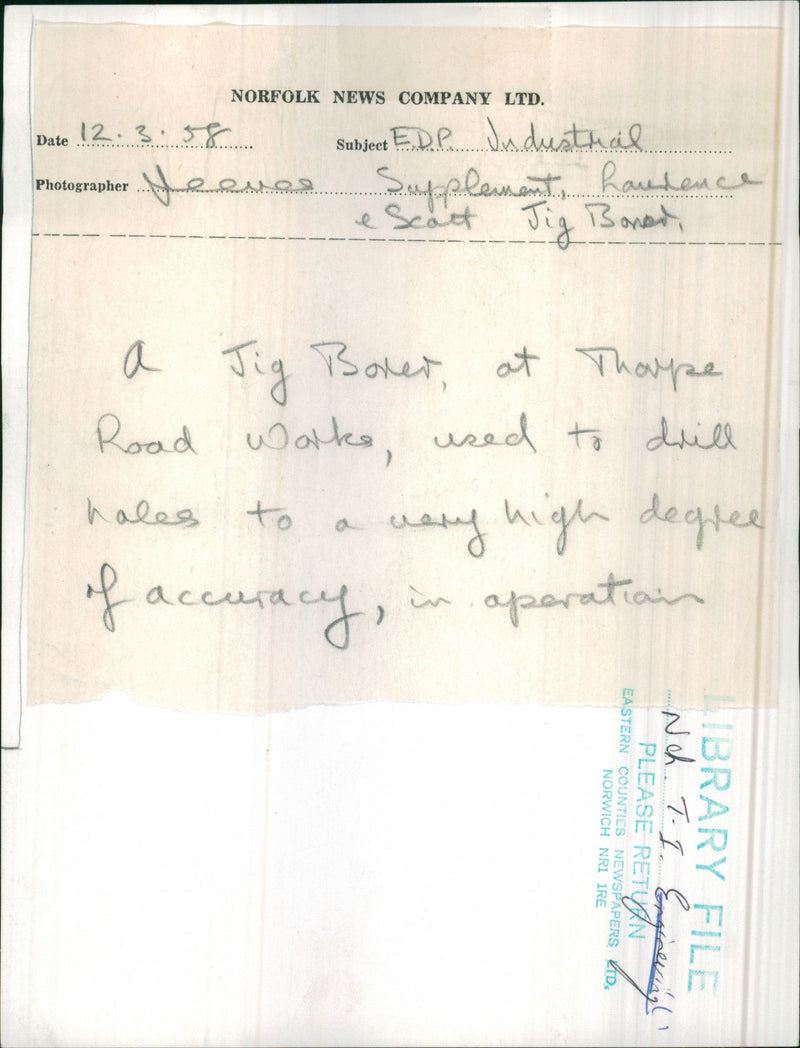 NORFOLK NEWS COMPANY LTD.
Date 12.3.58 Subject EDP. Industrial
Photographer Supplement, Laurence
e Scott Jig Borer.
A Jig Borer, at Thorpe
Road Works, used to drill
holes to a very high degree
of accuracy, in operation
LIBRARY FILE
Nch. T.I. Engineering
PLEASE RETURN
EASTERN COUNTIES NEWSPAPERS LTD.
NORWICH NR1 1RE